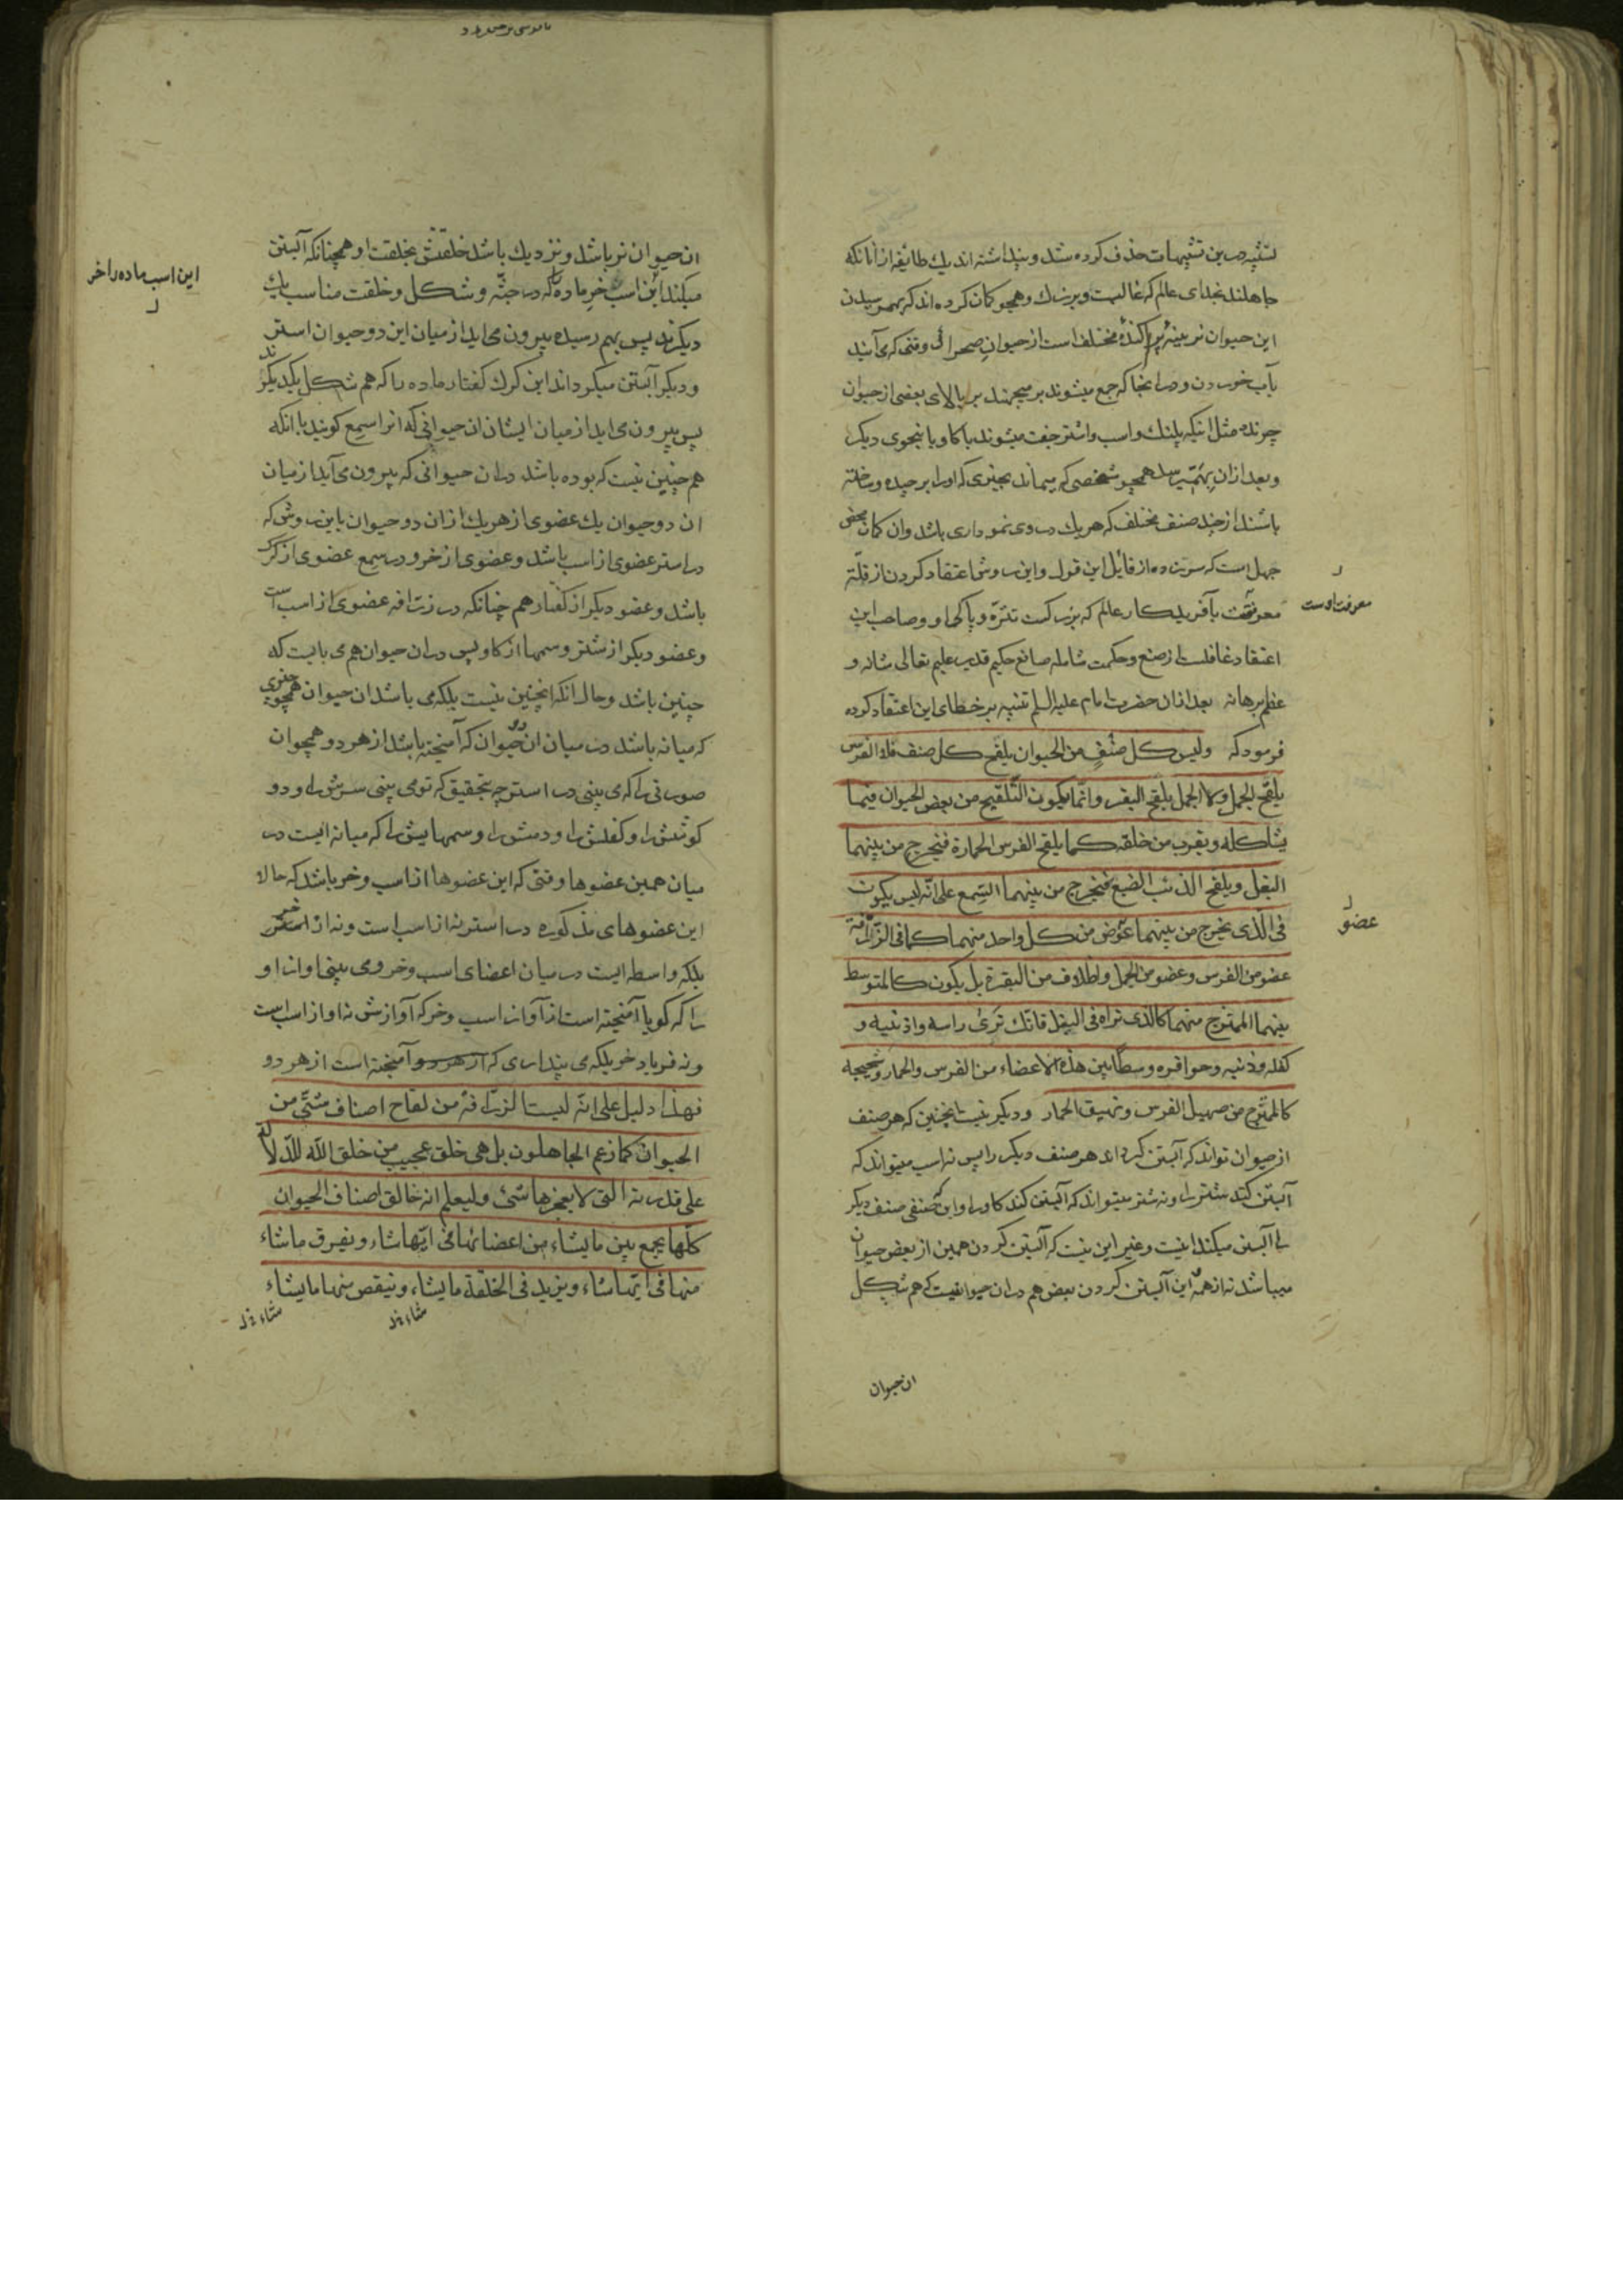 تشبیه درین تشبیهات حذف کرده شد و پنداشته اند یك طایفه از انانکه
جاهلند بخدای عالم که غالبست و بزرك و همچو کمان کرده اند که بهمرسیدن
این حیوان نرینۀ پراکندۀ مختلف است از حیوان صحرائی وقتی که می آیند
بآب خوردن و درانجا که جمع میشوند بر میجهند بر بالای بعضی از حیوان
چرنده مثل اینکه پلنك و اسب و اشتر جفت میشوند با کاو یا بنحوی دیکر
و بعد ازان بهم میرسد همچو شخصی که میماند بچیزی که اورا برچیده و ساخته
باشند از چند صنف مختلف که هر یك در وی نموداری باشد وان کمان محض
جهل است که سرزده از قایل این قول و این روش اعتقاد کردن از قلّة
معرفتست بآفریدکار عالم که بزرکست تنزّه و پاکی او و صاحب این
معرفت اوست
اعتقاد غافلست از صنع و حکمت شامله صانع حکیم قدیر علیم تعالی شانه و
عظم برهانه بعد ازان حضرت امام علیه السلم تنبیه بر خطای این اعتقاد کرده
فرمود که ولیس کل صنفٍ من الحیوان یلقح کل صنف فلا الفرس
یلقح الجمل ولا الجمل یلقح البقر وانّما یکون التّلقیح من بعض الحیوان فیما
یشاکله ویقرب من خلقه کما یلقح الفرس الحمارة فیخرج من بینهما
البغل ویلقح الذئب الضبع فیخرج من بینهما السّمع علی انّه لیس یکون
فی الّذی یخرج من بینهما عوض من کل واحد منهما کما فی الزّرافة
عضو
عضو من الفرس وعضو من الجمل واظلاف من البقرة بل یکون کالمتوسط
بینهما الممتزج منهما کالذی تراه فی البغل فانّك تری راسه واذنیه و
کفله وذنبه وحوافره وسطاً بین هذه الاعضاء من الفرس والحمار وشحیجه
کالممتزج من صهیل الفرس ونهیق الحمار ودیکر نیست اینچنین که هر صنف
از حیوان تواند که آبستن کرداند هر صنف دیکر را پس نه اسب میتواند که
آبستن کند شتر را و نه شتر میتواند که آبستن کند کاو را و این که صنفی صنف دیکر
را آبستن میکند نیست وغیر این نیست که آبستن کردن همین از بعض حیوان
میباشد نه از همه این آبستن کردن بعض هم دران حیوانیست که هم شکل
ان حیوان
ان حیوان نر باشد و نزدیك باشد خلقتش بخلقت او همچنانکه آبستن
میکند این اسب خر ماده را که در جثّه و شکل و خلقت مناسب یك
این اسب ماده را خر
دیکرند پس بهم رسیده بیرون می اید از میان این دو حیوان استر
و دیکر آبستن میکرداند این کرك کفتار ماده را که هم شکل یکدیکرند
پس بیرون می اید از میان ایشان ان حیوانی که انرا سمع کویند با انکه
هم چنین نیست که بوده باشد دران حیوانی که بیرون می آید از میان
ان دو حیوان یك عضوی از هر یك ازان دو حیوان باین روش که
در استر عضوی از اسب باشد و عضوی از خر و در سمع عضوی از کرك
باشد و عضو دیکر از کفتار هم چنانکه در زرافه عضوی از اسب است
و عضو دیکر از شتر و سمها از کاو پس دران حیوان هم می بایست که
چنین باشد و حال انکه انچنین نیست بلکه می باشد ان حیوان همچو چیزی
که میانه باشد در میان ان دو حیوان که آمیخته باشد از هر دو همچو ان
صورتی را که می بینی در استر چه بتحقیق که تو می بینی سرش را و دو
کوشش را و کفلش را و دمش را و سمهایش را که میانه ایست در
میان همین عضوها وقتی که این عضوها از اسب و خر باشد که حالا
این عضوهای مذکوره در استر نه از اسب است و نه از خر
بلکه واسطه ایست در میان اعضای اسب و خر و می بینی اواز او
را که کویا آمیخته است از آواز اسب و خر که آوازش نه اواز اسبست
و نه فریاد خر بلکه می پنداری که از هر دو آمیخته است از هر دو
فهذا دلیل علی انّه لیست الزرّافة من لقاح اصناف شتّی من
الحیوان کما زعم الجاهلون بل هی خلق عجیب من خلق الله للّدلالة
علی قدرته الّتی لا یعجزها شئ ولیعلم انه خالق اصناف الحیوان
کلّها یجمع بین ما یشاء من اعضائها فی ایّها شاء ویفرق ما شاء
منها فی ایّها شاء ویزید فی الخلقة ما یشاء وینقص منها ما یشاء
شاء شاء